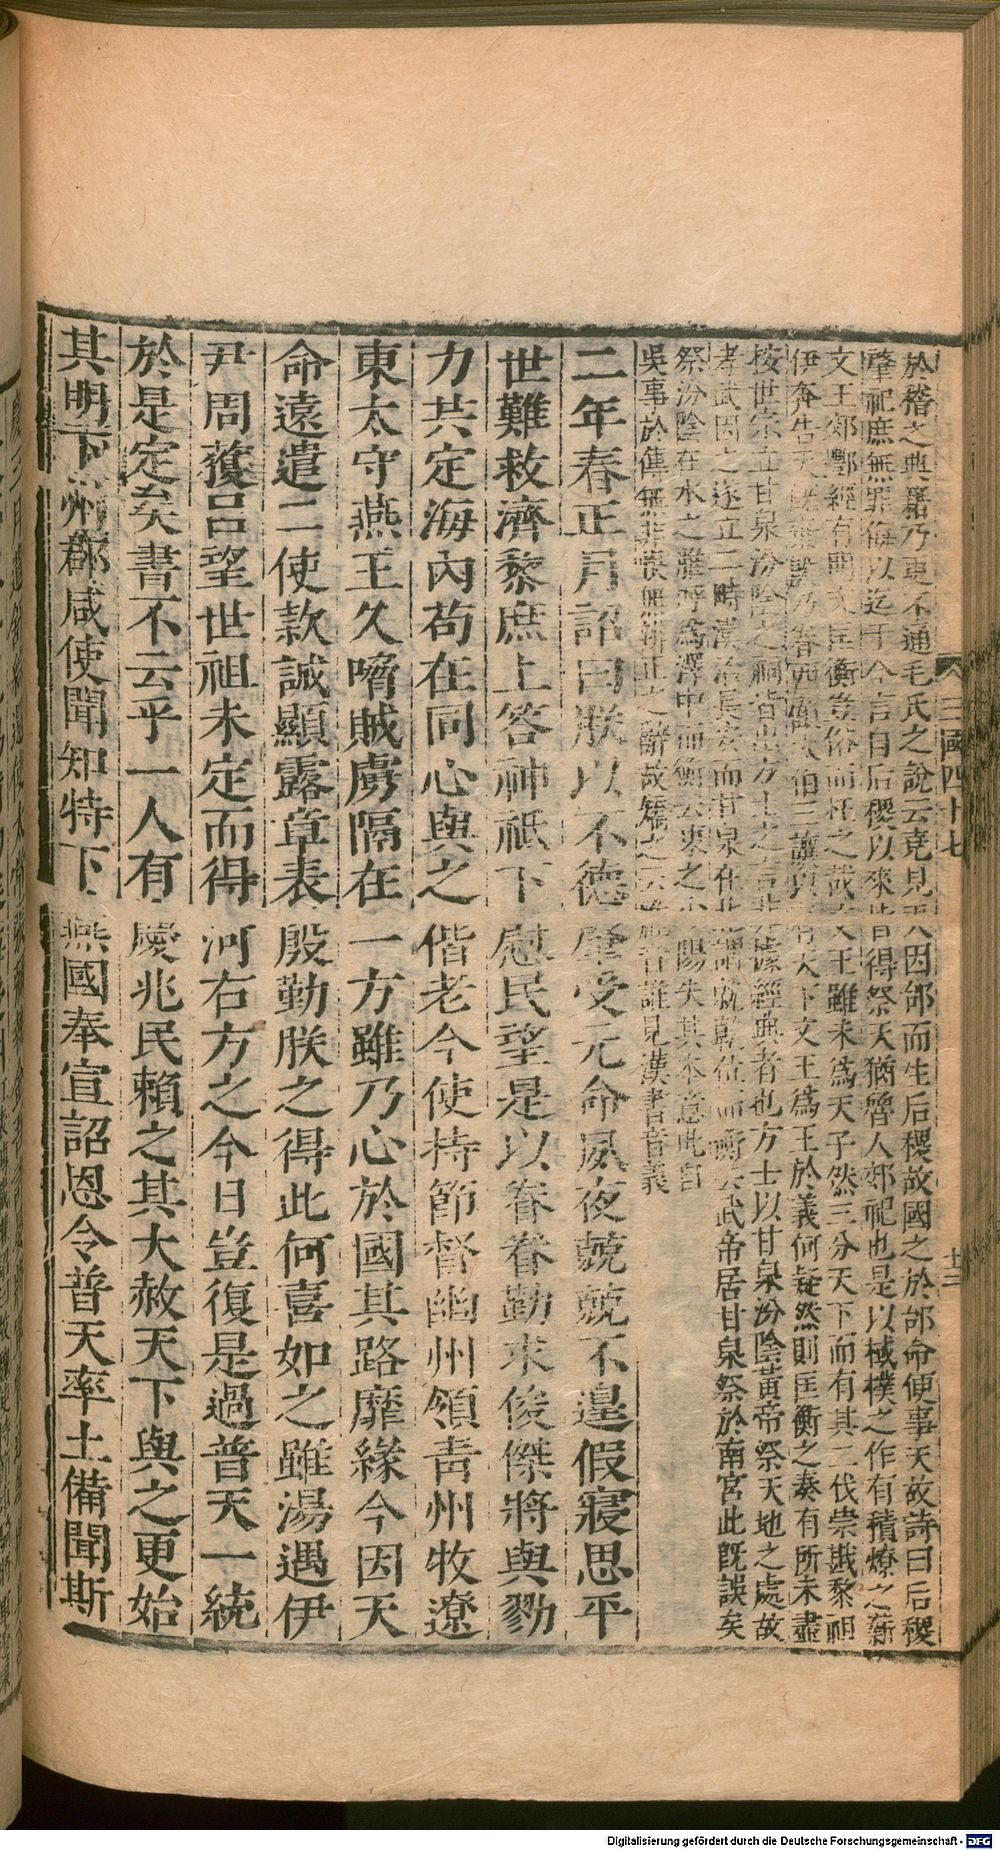 三國四十七
於稽之典籍乃更不通毛氏之說云堯見天因邰而生后稷故國之於邰命使事天故詩曰后稷
肇祀庶無罪悔以迄于今言自后稷以來皆得祭天猶魯人郊祀也是以棫樸之作有積燎之薪
文王郊酆經有明文匡衡豈俗而枉之哉文王雖未為天子然三分天下而有其二伐崇戡黎祖
伊奔告天既棄殷乃眷西顧太伯三讓以有天下文王為王於義何疑然則匡衡之奏有所未盡
按世宗立甘泉汾陰之祠皆出方士之言非據經典者也方士以甘泉汾陰黃帝祭天地之處故
孝武因之遂立二畤漢治長安而甘泉在北謂就乾位而衡云武帝居甘泉祭於南宮此既誤矣
祭汾陰在水之脽呼為澤中而衡云東之少陽失其本意此自
吳事於傳無非恨無辨正之辭故矯之云脽音誰見漢書音義
二年春正月詔曰朕以不德肇受元命夙夜兢兢不遑假寢思平
世難救濟黎庶上答神祇下慰民望是以眷眷勤求俊傑將與勠
力共定海內苟在同心與之偕老今使持節督幽州領青州牧遼
東太守燕王久脅賊虜隔在一方雖乃心於國其路靡緣今因天
命遠遣二使款誠顯露章表殷勤朕之得此何喜如之雖湯遇伊
尹周獲呂望世祖未定而得河右方之今日豈復是過普天一統
於是定矣書不云乎一人有慶兆民賴之其大赦天下與之更始
其明下州郡咸使聞知特下燕國奉宣詔恩令普天率土備聞斯
Digitalisierung gefördert durch die Deutsche Forschungsgemeinschaft - DFG